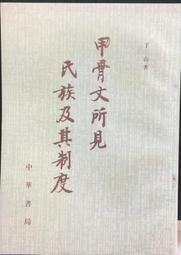 丁山著
甲骨文所見
氏族及其制度
中華書局